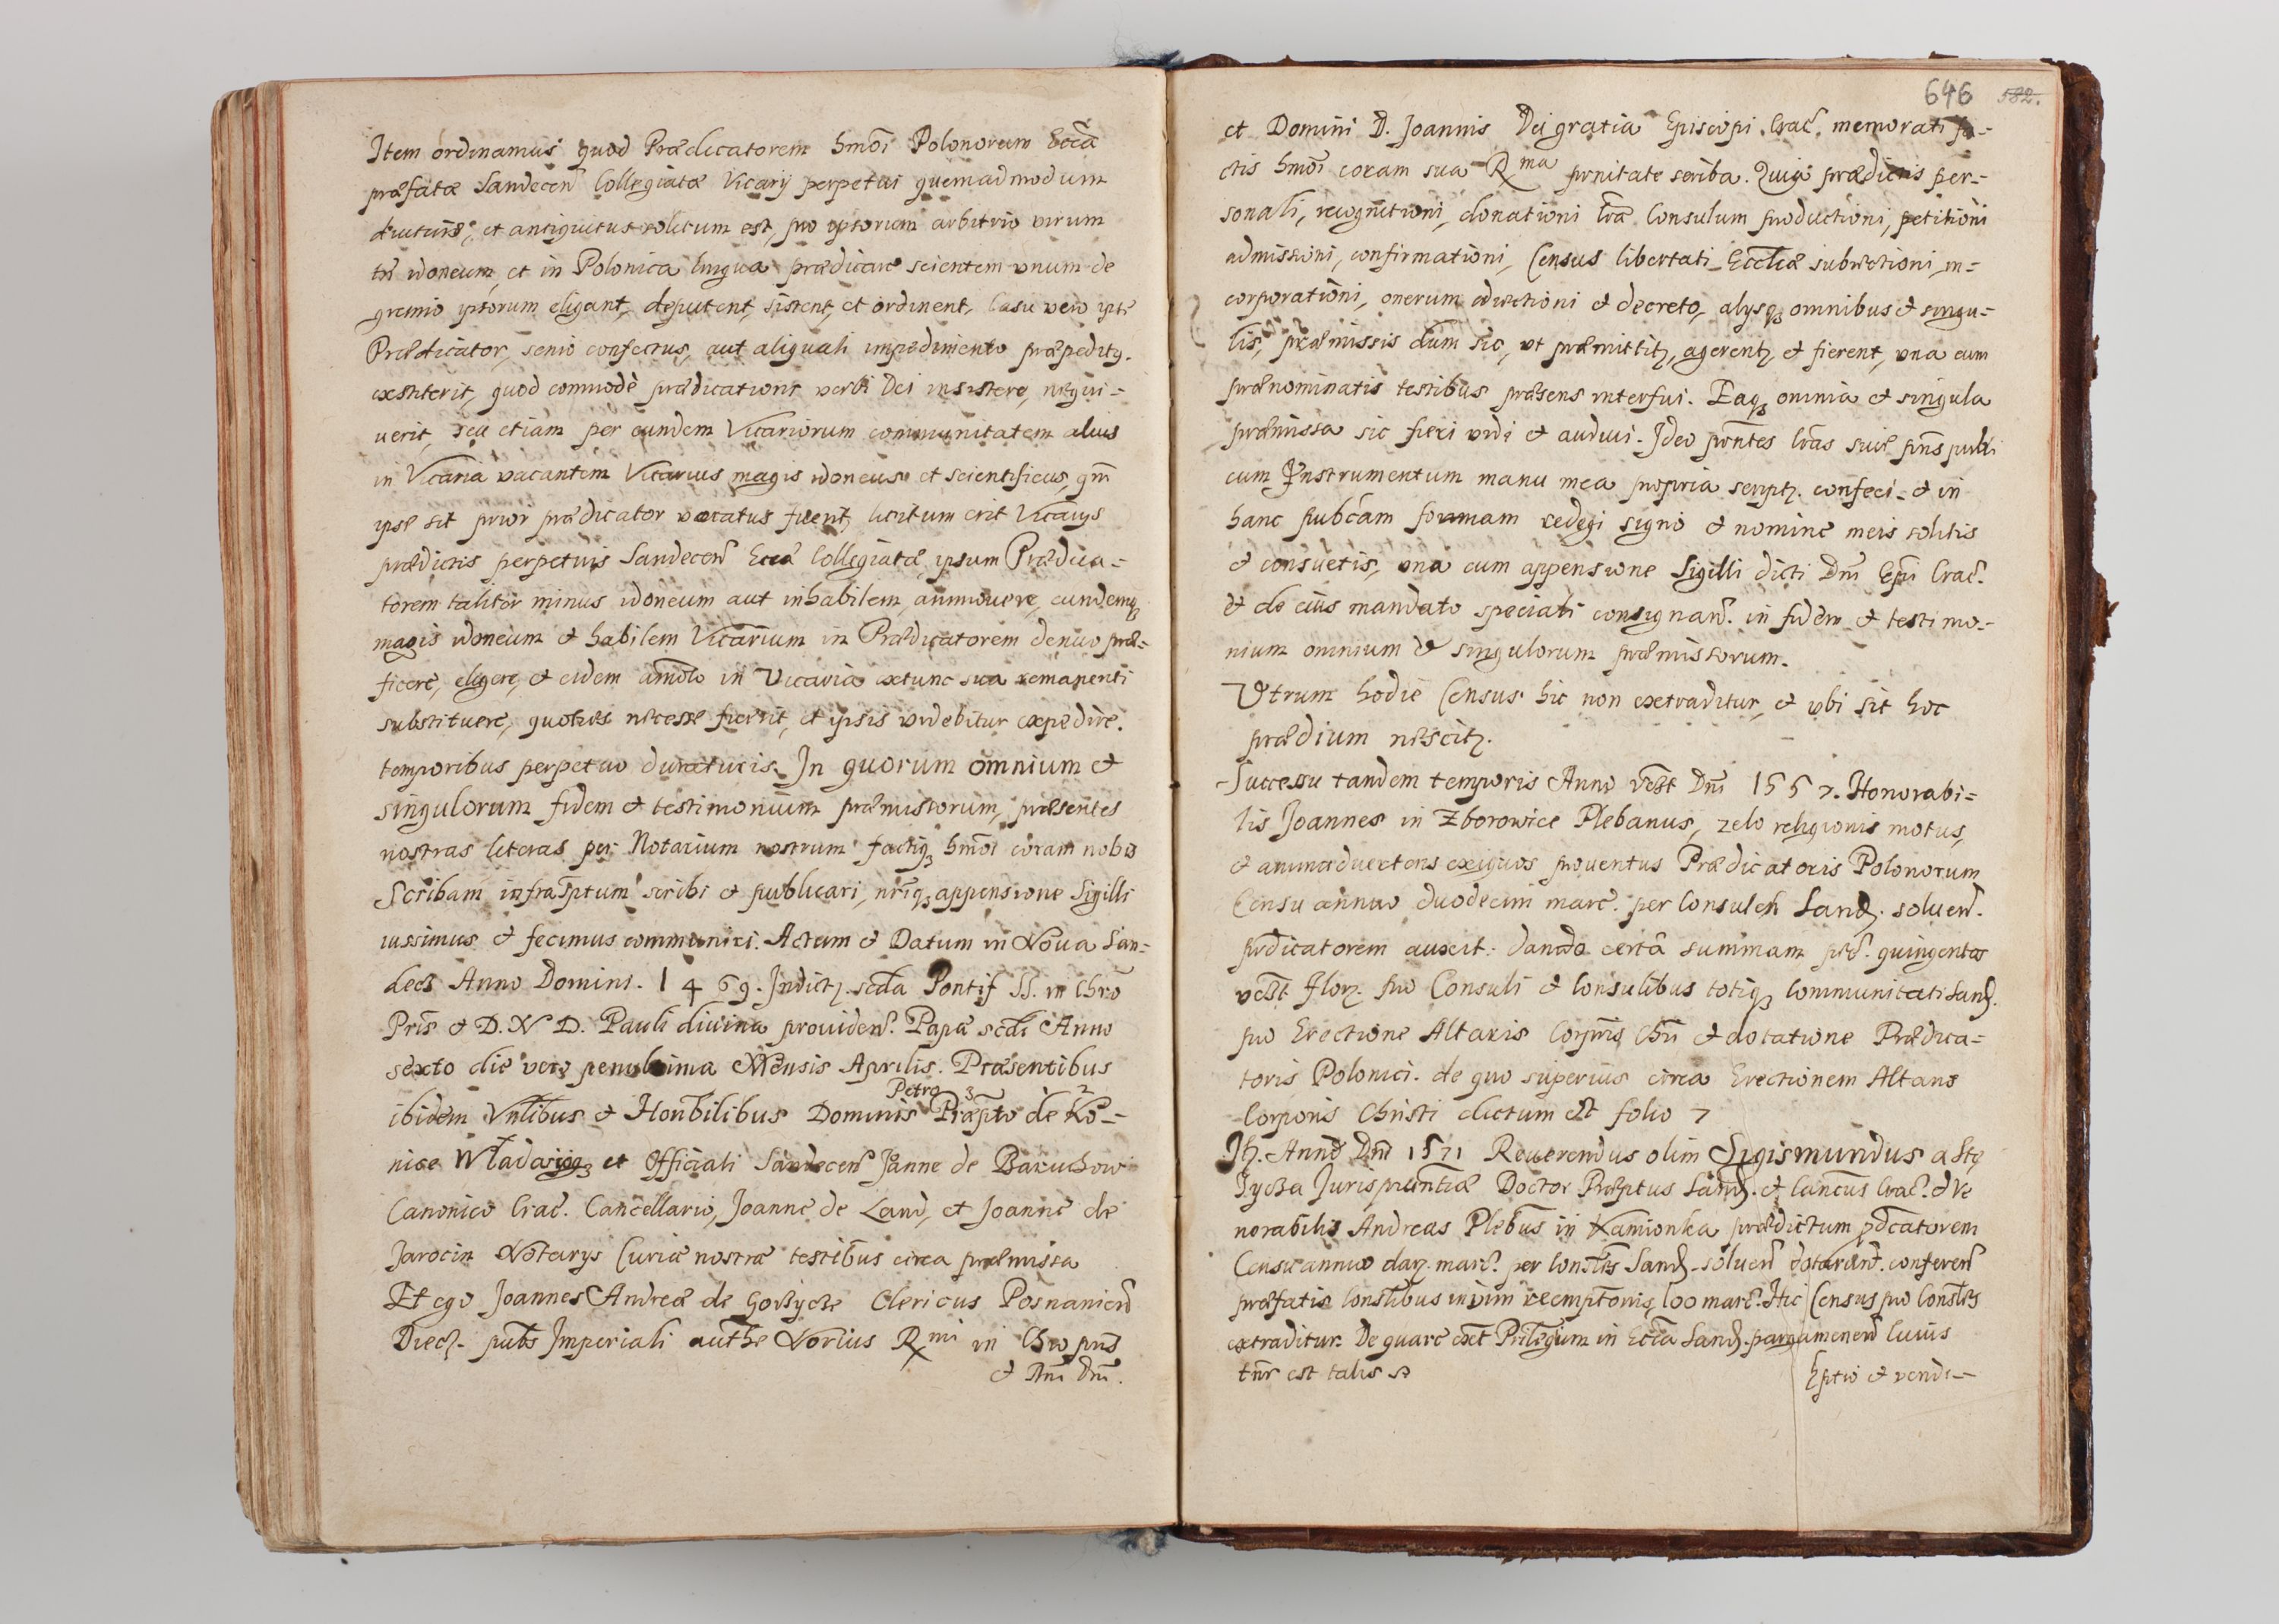 Item ordinamus quod Prædicatorem hmōi Polonorum Eccā
præfatæ Sandecen̄ Collegiatæ Vicarij perpetui quemadmodum
et antiquitus solitum est, pro ipsorum arbitrio virum
tn̄ idoneum, et in Polonica lingua prædicare scientem vnum de
gremio ipsorum eligant, deputent, sistent, et ordinent, Casu vero ipse
Prædicator, senio confectus, aut aliquali impedimento præpeditq.
exstiterit, quod commodè prædicationi verbi Dei insistere, nequi-
uerit, seu etiam per eundem Vicariorum communitatem alius
in Vicaria vacantem Vicarius magis idoneus et scientificus, qm̄
ipse sit prior prædicator vocatus fuerit, licitum erit Vicarijs
prædictis perpetuis Sandecen̄ Eccā Collegiatæ, ipsum Prædica-
torem taliter minus idoneum aut inhabilem, ammouere, eundemqȝ
magis idoneum et habilem Vicarium in Prædicatorem denuo præ-
ficere, eligere, et eidem amōto in Vicaria extunc sua remanenti
substituere, quoties necesse fuerit, et ipsis videbitur expedire.
temporibus perpetuo duraturis. In quorum omnium et
singulorum fidem et testimonium præmissorum, præsentes
nostras literas per Notarium nostrum factiqȝ hmōi coram nobis
Scribam infrascriptum scribi et publicari, nr̄iqȝ appensione Sigilli
iussimus et fecimus communiri. Actum et Datum in Noua San-
decz Anno Domini. 1469. Indictȝ. scd̄a Pontif SS. in Chrō
Pris et D. N D. Pauli diuina prouiden̄. Papæ scdi Anno
sexto die vero penultima Mensis Aprilis. Præsentibus
Petro 3 2
ibidem Vn̄libus et Honbilibus Dominis Præpto de Ko-
nice Wladasijqȝ et Officiali Sandecen̄ Janne de Baruchow
Canonico Crac̄. Cancellario, Joanne de Land, et Joanne de
Jarocin Notarijs Curiæ nostræ testibus circa præmissa
Et ego Joannes Andreæ de Gostycze Clericus Posnanien̄
Diecȝ. pub̄s Imperiali authe Norius Rmi in Chro pr̄is
et Dn̄i Dn̄i.
646 582.
et Domini D. Joannis Dei gratia Episcopi Crac̄. memorati fa-
ctis hmōi coram sua Rma prnitate scriba. Quia prædictis per-
sonali, recognitioni, donationi lrā Consulum productioni, petitioni
admissioni, confirmationi, Census libertati Eccl̄æ subiectioni, in-
corporationi, onerum adiectioni et decreto, alijsqȝ omnibus et singu-
lis, præmissis dum sic, vt præmittitȝ, agerentȝ, et fierent, vna cum
prænominatis testibus præsens interfui. Eaqȝ omnia et singula
præmissa sic fieri vidi et audiui. Ideo prn̄tes lrās siue prn̄s publi
cum Instrumentum manu mea propria scriptȝ. confeci. et in
hanc pubcam formam redegi signo et nomine meis solitis
et consuetis, vna cum appensione Sigilli dicti Dn̄i Epī Crac̄.
et de eius mandato speciali consignan̄. in fidem et testimo-
nium omnium et singulorum præmissorum.
Vtrum hodie Census hic non extraditur, et vbi sit hoc
prædium nescitȝ.
Successu tandem temporis Anno vc̄zt Dn̄i 1557. Honorabi-
lis Joannes in Zborowice Plebanus, zelo religionis motus,
et animaduertens exiguos prouentus Prædicatoris Polonorum
Censu annuo duodecim marc̄. per Consuleh Sandȝ. soluen̄.
prdicatorem auxit: dando certā summam pec̄. quingentos
vc̄zt florȝ. pro Consuli et Consulibus totiqȝ Communitati Sandȝ.
pro Erectione Altaris Corpris Chri et dotatione Prædica-
toris Polonici. de quo superius circa Erectionem Altaris
Corporis Christi dictum est folio 7
Itȝ. Anno Dn̄i 1571 Reuerendus olim Sigismundus a Stę
Życza Jurisprun̄tiæ Doctor Præptus Sandȝ. et Cancūs Crac̄. et Ve
norabilis Andreas Plebūs in Kamionka prædictum pd̄catorem
Censu annuo marc̄. per Consles Sandȝ. soluen̄ dotarun̄t. conferen̄
præfatis Conslibus in vim reemptionis 100 marc̄. Hic Census pro Consles
extraditur. De quare ext Priłegium in Eccīa Sandȝ. pargamenen̄ Cuius
tn̄r est talis
Eptio et vendi-